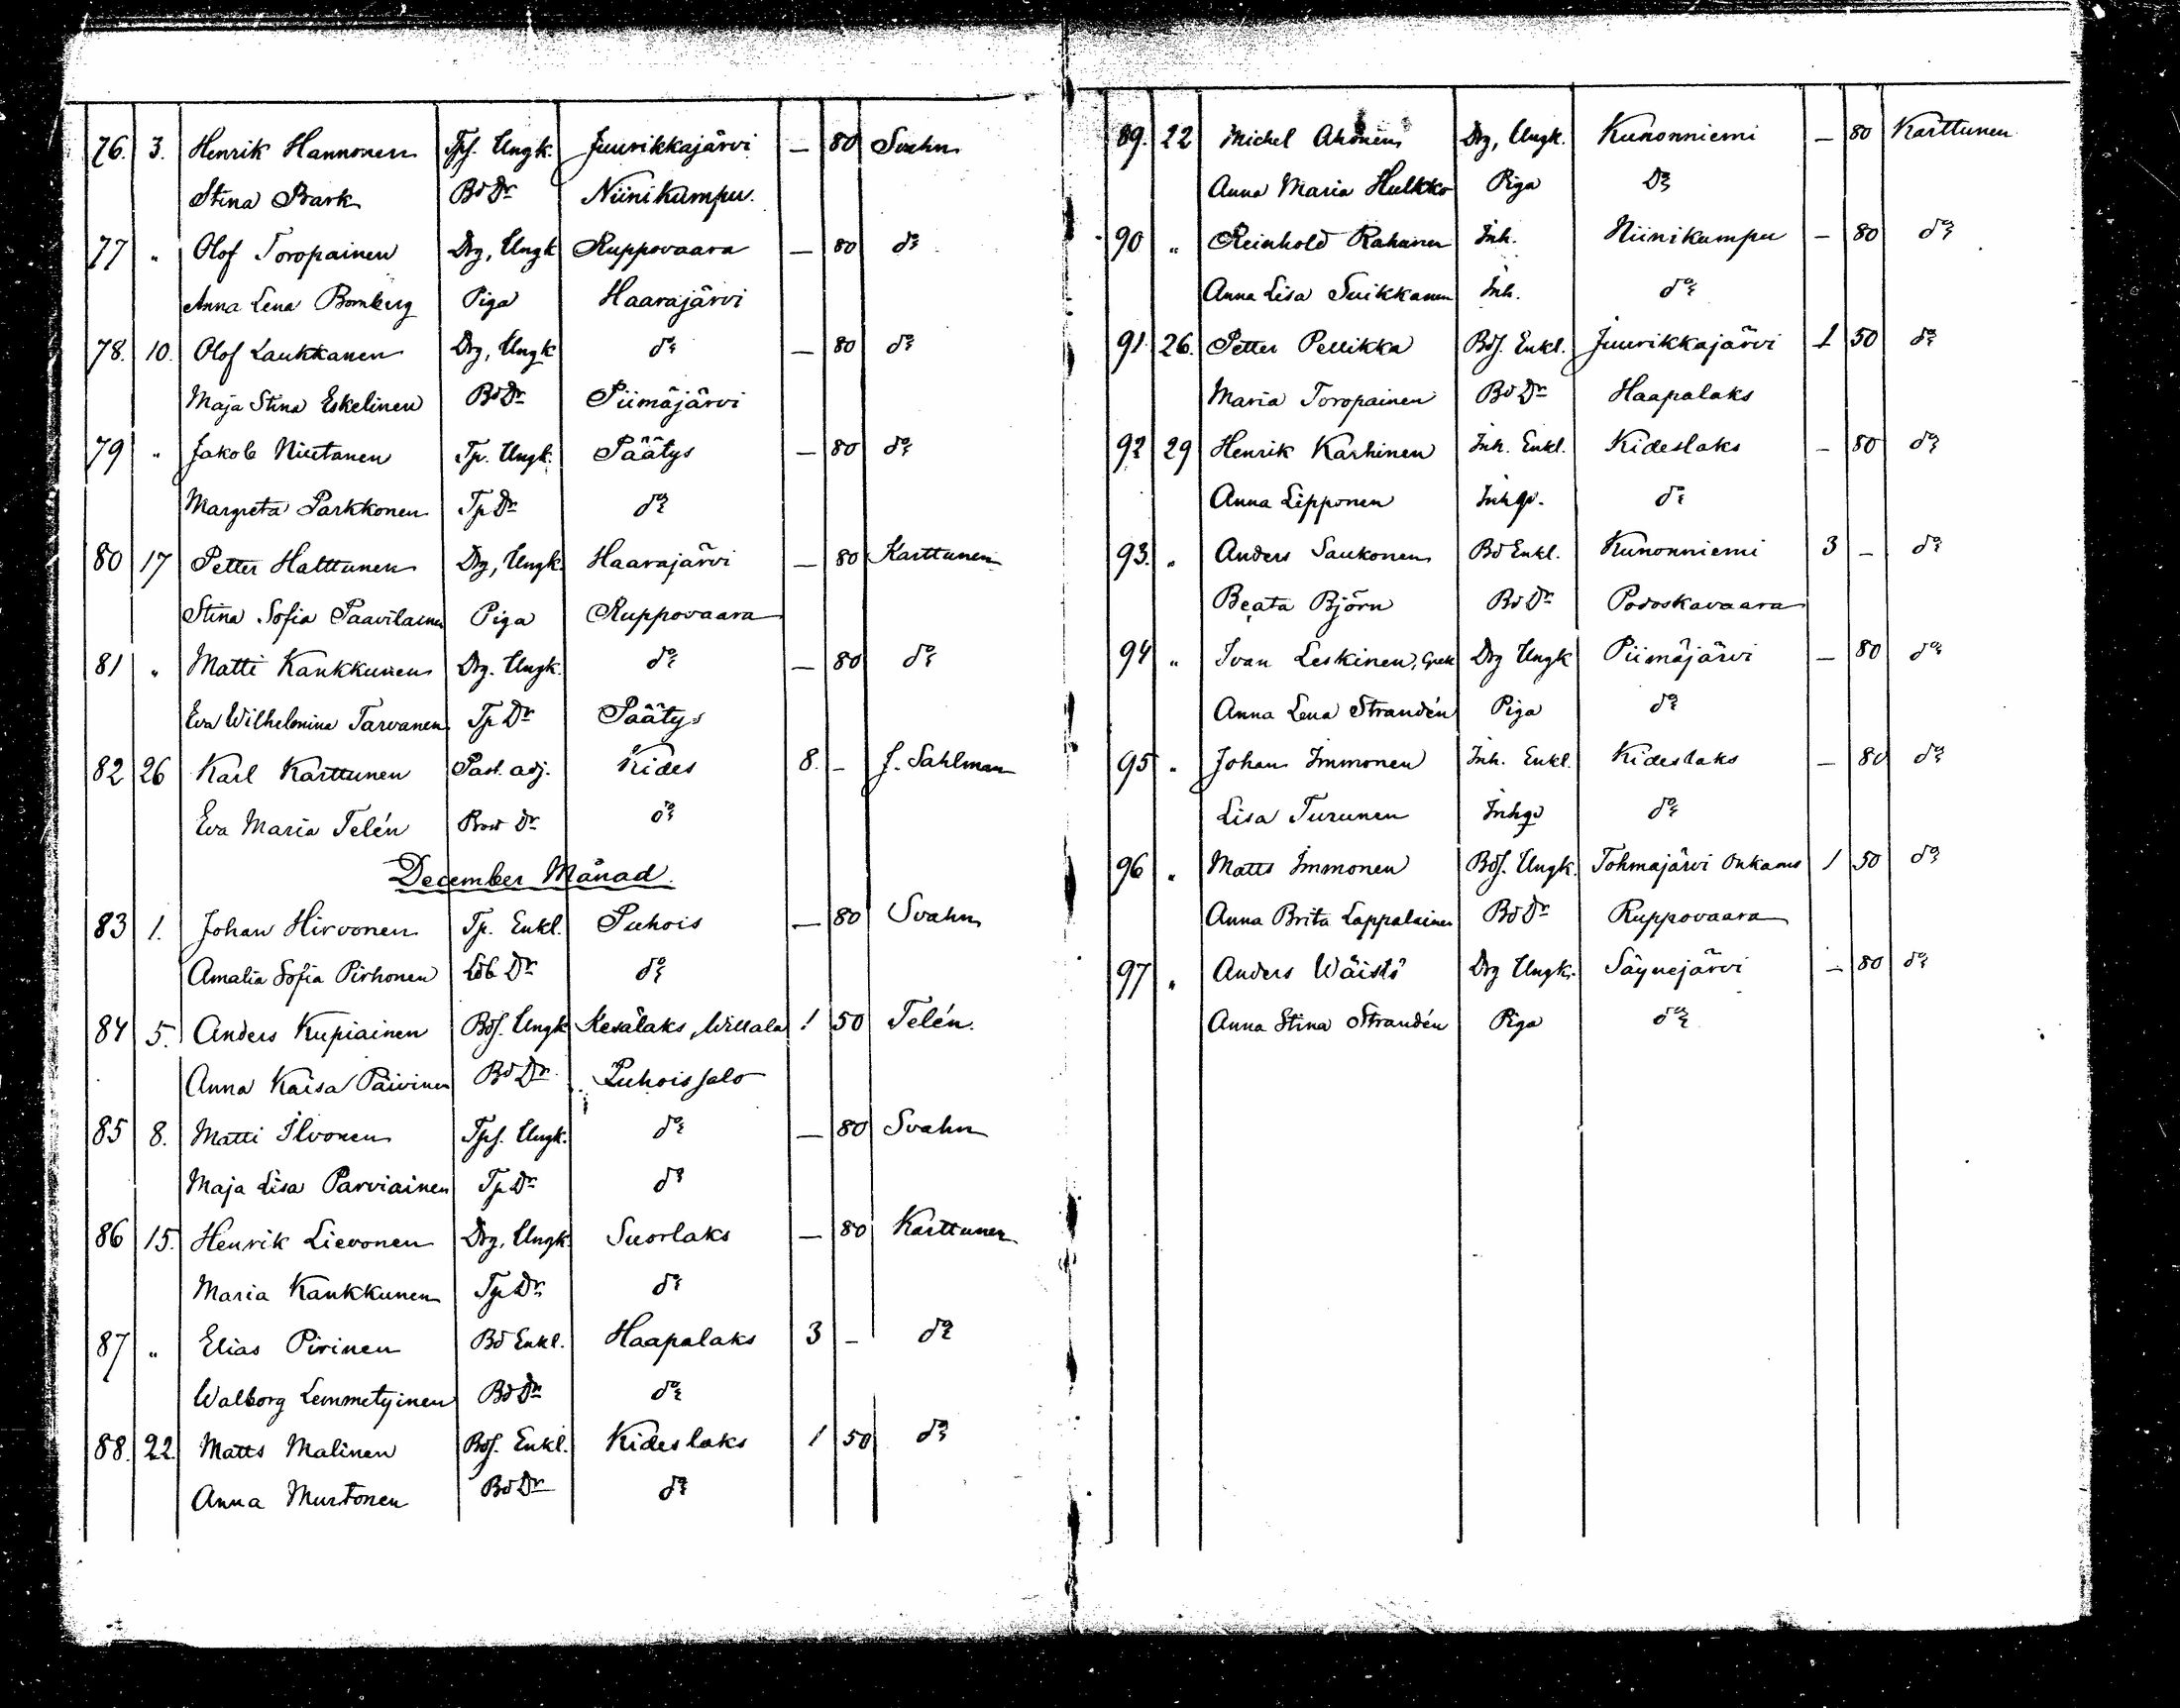 76. 3. Henrik Hannonen Tpf. Ungk. Juurikkajärvi — 80 Svahn
Stina Bark Bd Dr Niinikumpu.
77 " Olof Toropainen Drg, Ungk Ruppovaara — 80 do
Anna Lena Bomberg Piga Haarajärvi
78. 10. Olof Laukkanen Drg, Ungk do — 80 do
Maja Stina Eskelinen Bd Dr Piimäjärvi
79 " Jakob Niutanen Tp. Ungk. Päätys — 80 do
Margreta Parkkonen Tp Dr do
80 17 Petter Halttunen Drg, Ungk. Haarajärvi — 80 Karttunen
Stina Sofia Paavilainen Piga Ruppovaara
81 " Matti Kankkunen Drg. Ungk. do — 80 do
Eva Wilhelmina Tarvanen Tp Dr Päätys
82 26 Karl Karttunen Past. adj. Kides 8. — J. Sahlman
Eva Maria Telén Prost Dr do
December Månad.
83 1. Johan Hirvonen Tp. Enkl. Puhois — 80 Svahn
Amalia Sofia Pirhonen Löb Dr do
84 5. Anders Kupiainen Bdf. Ungk Kesälaks, Willala 1 50 Telén.
Anna Kaisa Päivinen Bd Dr Puhoissalo
85 8. Matti Ilvonen Tpf. Ungk. do — 80 Svahn
Maja Lisa Parviainen Tp Dr do
86 15. Henrik Lievonen Drg, Ungk. Suorlaks — 80 Karttunen
Maria Kankkunen Tp Dr do
87 " Elias Pirinen Bd Enkl. Haapalaks 3 — do
Walborg Lemmetyinen Bd Dr do
88. 22. Matts Malinen Bdf. Enkl. Kideslaks 1 50 do
Anna Murtonen Bd Dr do
89. 22 Michel Ahonen Drg, Ungk. Kunonniemi — 80 Karttunen
Anna Maria Hulkko Piga Do
90 " Reinhold Rahunen Inh. Niinikumpu — 80 do
Anna Lisa Suikkanen Inh. do
91. 26. Petter Pellikka Bdf. Enkl. Juurikkajärvi 1 50 do
Maria Toropainen Bd Dr Haapalaks
92 29 Henrik Karhinen Inh. Enkl. Kideslaks — 80 do
Anna Lipponen Inhqv. do
93. " Anders Saukonen Bd Enkl. Kunonniemi 3 — do
Beata Björn Bd Dr Podoskavaara
94 " Ivan Leskinen, Grek Drg Ungk Piimäjärvi — 80 do
Anna Lena Strandén Piga do
95 " Johan Immonen Inh. Enkl. Kideslaks — 80 do
Lisa Turunen Inhqv do
96 " Matts Immonen Bdf. Ungk. Tohmajärvi Onkams 1 50 do
Anna Brita Lappalainen Bd Dr Ruppovaara
97 " Anders Wäistö Drg Ungk. Säynejärvi — 80 do
Anna Stina Strandén Piga do